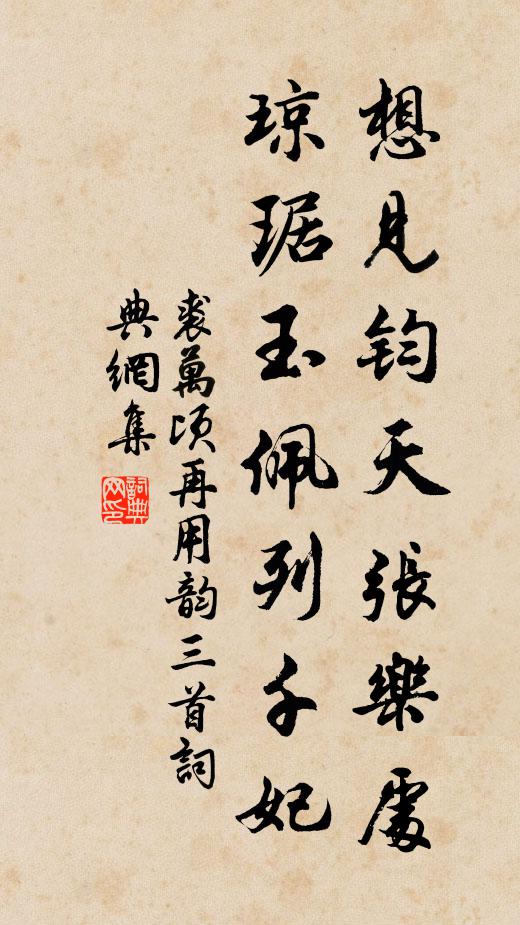 想見鈞天張樂處
琼琚玉佩列千妃
裘萬頃再用韵三首詞
典網集
詞典
网印